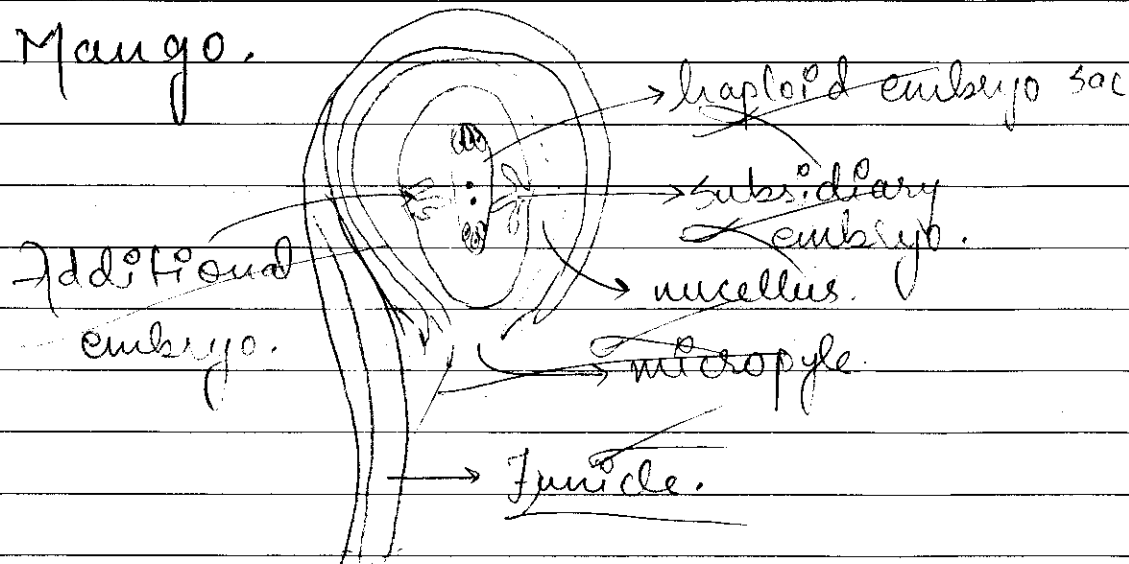 Mango.
haploid embryo sac
subsidiary
embryo.
Additional
embryo.
nucellus.
micropyle.
Funicle.